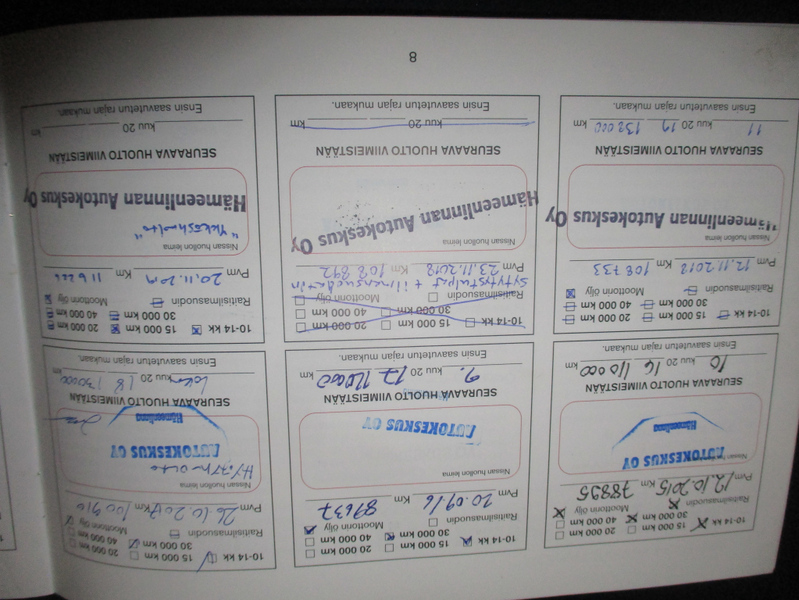 10-14 kk 15 000 km 20 000 km
30 000 km 40 000 km
Raitisilmasuodin Moottorin öljy
Pvm 12.10.2015 Km 78895
Nissan huollon leima
AUTOKESKUS OY
Hämeenlinna
SEURAAVA HUOLTO VIIMEISTÄÄN
10 kuu 20 16 110000 km
Ensin saavutetun rajan mukaan.
10-14 kk 15 000 km 20 000 km
30 000 km 40 000 km
Raitisilmasuodin Moottorin öljy
Pvm 20.09.16 Km 89637
Nissan huollon leima
AUTOKESKUS OY
SEURAAVA HUOLTO VIIMEISTÄÄN
9. kuu 20 17 120000 km
Ensin saavutetun rajan mukaan.
10-14 kk 15 000 km 20 000 km
30 000 km 40 000 km
Raitisilmasuodin Moottorin öljy
Pvm 26.10.2017 Km 100910
Nissan huollon leima
AUTOKESKUS OY
Hämeenlinna
SEURAAVA HUOLTO VIIMEISTÄÄN
loka kuu 20 18 130000 km
Ensin saavutetun rajan mukaan.
10-14 kk 15 000 km 20 000 km
30 000 km 40 000 km
Raitisilmasuodin Moottorin öljy
Pvm 12.11.2018 Km 108733
Nissan huollon leima
Hämeenlinnan Autokeskus Oy
SEURAAVA HUOLTO VIIMEISTÄÄN
11 kuu 20 19 138000 km
Ensin saavutetun rajan mukaan.
10-14 kk 15 000 km 20 000 km
30 000 km 40 000 km
Raitisilmasuodin Moottorin öljy
Sytytystulpat + ilmansuodatin
Pvm 23.11.2018 Km 108 892
Nissan huollon leima
Hämeenlinnan Autokeskus Oy
SEURAAVA HUOLTO VIIMEISTÄÄN
kuu 20 km
Ensin saavutetun rajan mukaan.
10-14 kk 15 000 km 20 000 km
30 000 km 40 000 km
Raitisilmasuodin Moottorin öljy
Pvm 20.11.2019 Km
Nissan huollon leima
"Ykköshuolto"
Hämeenlinnan Autokeskus Oy
SEURAAVA HUOLTO VIIMEISTÄÄN
kuu 20 km
Ensin saavutetun rajan mukaan.
8